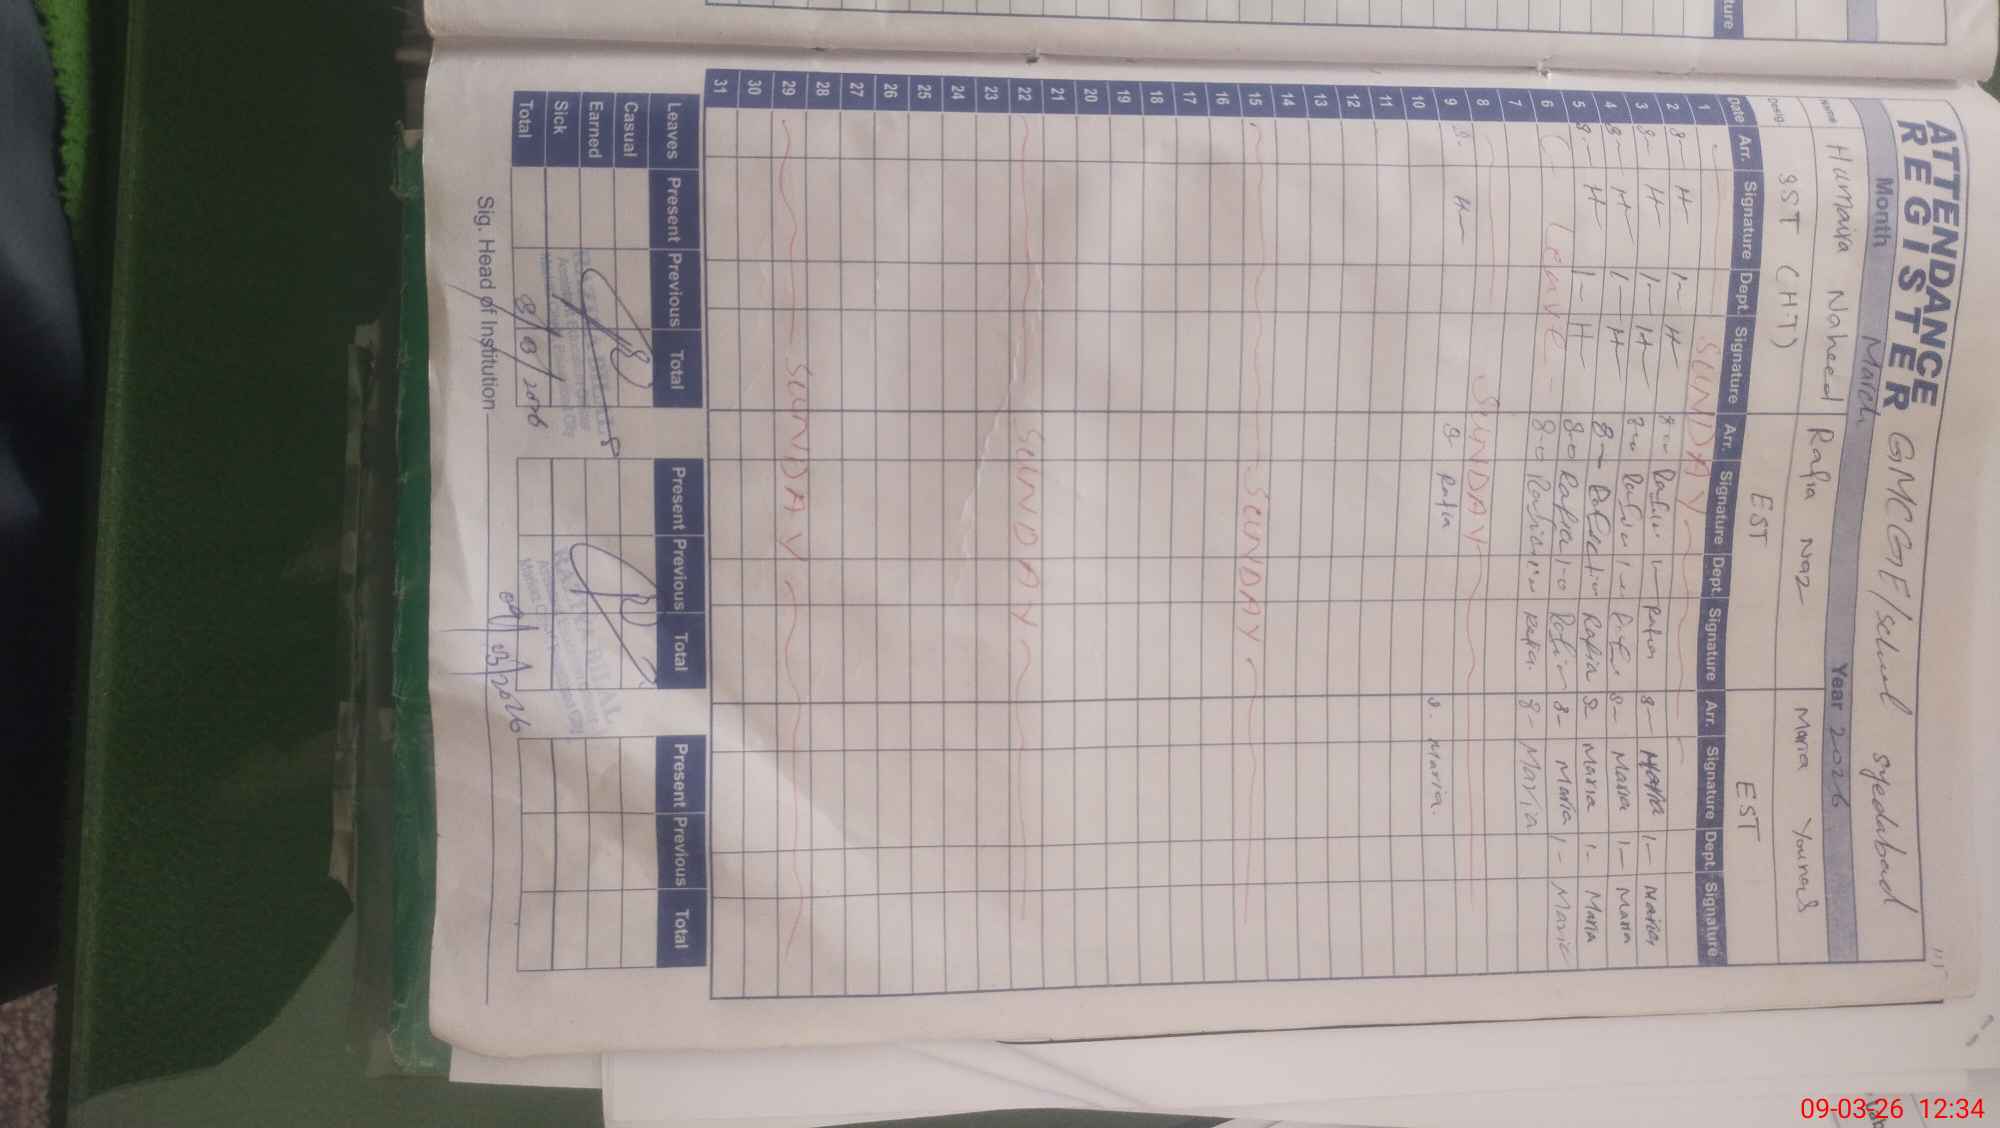 ATTENDANCE
REGISTER
GMCGE/school syedabad
Month March Year 2026
Name Humaira Naheed Rafia Naz Maria Younas
Desig. SST (H.T) EST EST
Date Arr. Signature Dept. Signature Arr. Signature Dept. Signature Arr. Signature Dept. Signature
1 SUNDAY
2 8- H 1- H 8-0 Rafia 1- Rafia 8- Maria 1- Maria
3 8- H 1- H 8-0 Rafia 1- Rafia 8- Maria 1- Maria
4 8- H 1- H 8- Rafia 1- Rafia 8- Maria 1- Maria
5 8- H 1- H 8-0 Rafia 1-0 Rafia 8- Maria 1- Maria
6 Leave 8-0 Rafia Rafia. 8- Maria
7
8 SUNDAY
9 8. H 8- Rafia 8. Maria.
10
11
12
13
14
15 SUNDAY
16
17
18
19
20
21
22 SUNDAY
23
24
25
26
27
28
29 SUNDAY
30
31
Leaves Present Previous Total Present Previous Total Present Previous Total
Casual
Earned
Sick
Total
09/03/2026
Sig. Head of Institution
09-03-26 12:34